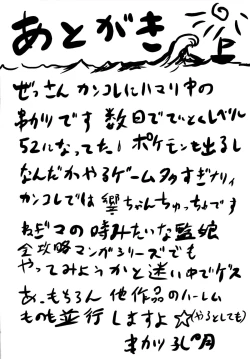 あとがき 上
ぜっさん カンコレにハマリ中の
串カツです 数日でていとくレベル
52になってた！ポケモンも出るし
なんだかやるゲーム多すぎナリィ
カンコレでは響ちゃんちゅっちゅです
ネギマの時みたいな艦娘
全攻略マンガシリーズでも
やってみようかと迷い中でゲス
あ、もちろん 他作品のハーレム
ものも並行しますよ☆(やるとしても)
串カツ